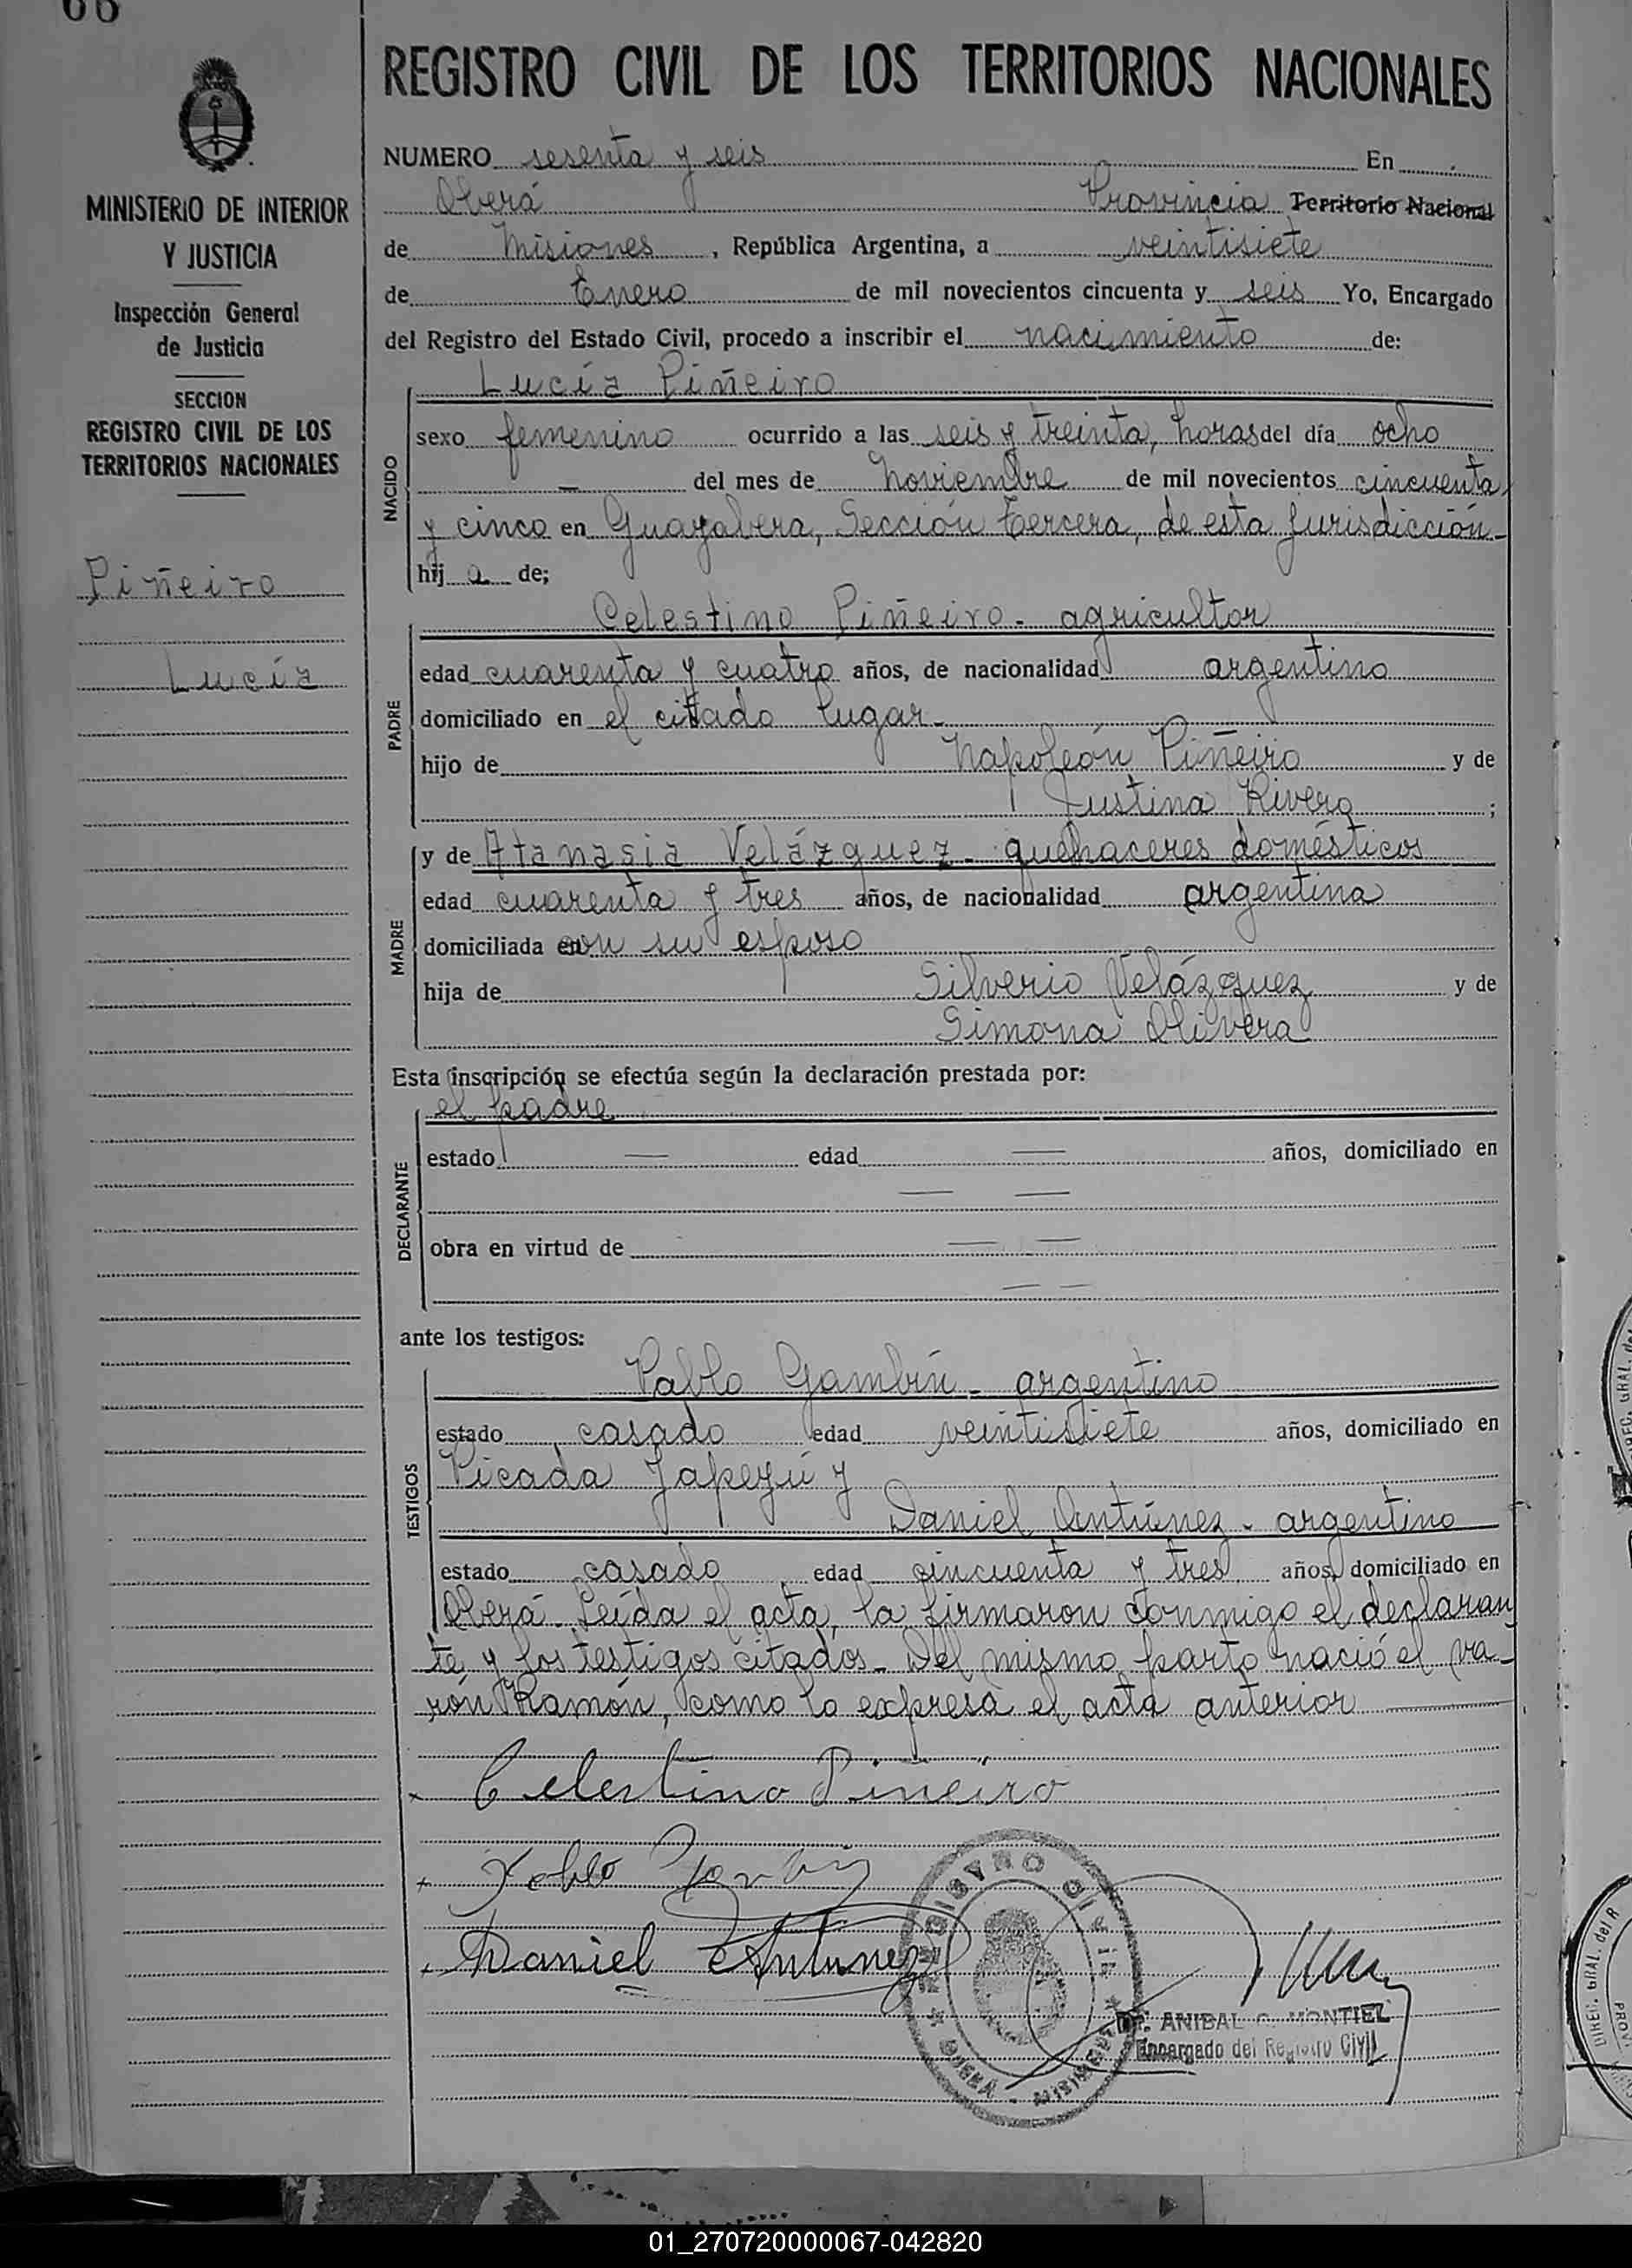 66
REGISTRO CIVIL DE LOS TERRITORIOS NACIONALES
MINISTERIO DE INTERIOR
Y JUSTICIA
Inspección General
de Justicia
SECCION
REGISTRO CIVIL DE LOS
TERRITORIOS NACIONALES
Piñeiro
Lucía
NUMERO sesenta y seis En
Oberá Provincia Territorio Nacional
de Misiones, República Argentina, a veintisiete
de Enero de mil novecientos cincuenta y seis Yo, Encargado
del Registro del Estado Civil, procedo a inscribir el nacimiento de:
NACIDO
Lucía Piñeiro
sexo femenino ocurrido a las seis y treinta, horas del día ocho
— del mes de Noviembre de mil novecientos cincuenta
y cinco en Guayabera, Sección Tercera, de esta jurisdicción-
hij a de;
PADRE
Celestino Piñeiro- agricultor
edad cuarenta y cuatro años, de nacionalidad argentino
domiciliado en el citado lugar-
hijo de Napoleón Piñeiro y de
Justina Rivero;
MADRE
y de Atanasia Velázquez- quehaceres domésticos
edad cuarenta y tres años, de nacionalidad argentina
domiciliada con su esposo
hija de Silverio Velázquez y de
Simona Olivera
Esta inscripción se efectúa según la declaración prestada por:
DECLARANTE
el padre
estado — edad — años, domiciliado en
— —
obra en virtud de — —
— —
ante los testigos:
TESTIGOS
Pablo Gambín- argentino
estado casado edad veintisiete años, domiciliado en
Picada Yapeyú y
Daniel Antúnez- argentino
estado casado edad cincuenta y tres años, domiciliado en
Oberá- Leída el acta, la firmaron conmigo el declaran
te y los testigos citados- Del mismo parto nació el va-
rón Ramón, como lo expresa el acta anterior
Celestino Piñeiro
Pablo
Daniel Antunez
REGISTRO CIVIL
OBERÁ - MISIONES
ANIBAL G. MONTIEL
Encargado del Registro Civil
DIREC. GRAL. de
DIREC. GRAL. del R
PROV
01_270720000067-042820